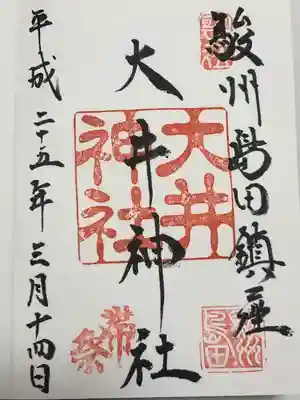 駿州島田鎮座
大井神社
平成二十五年三月十四日
大井
神社
帯祭